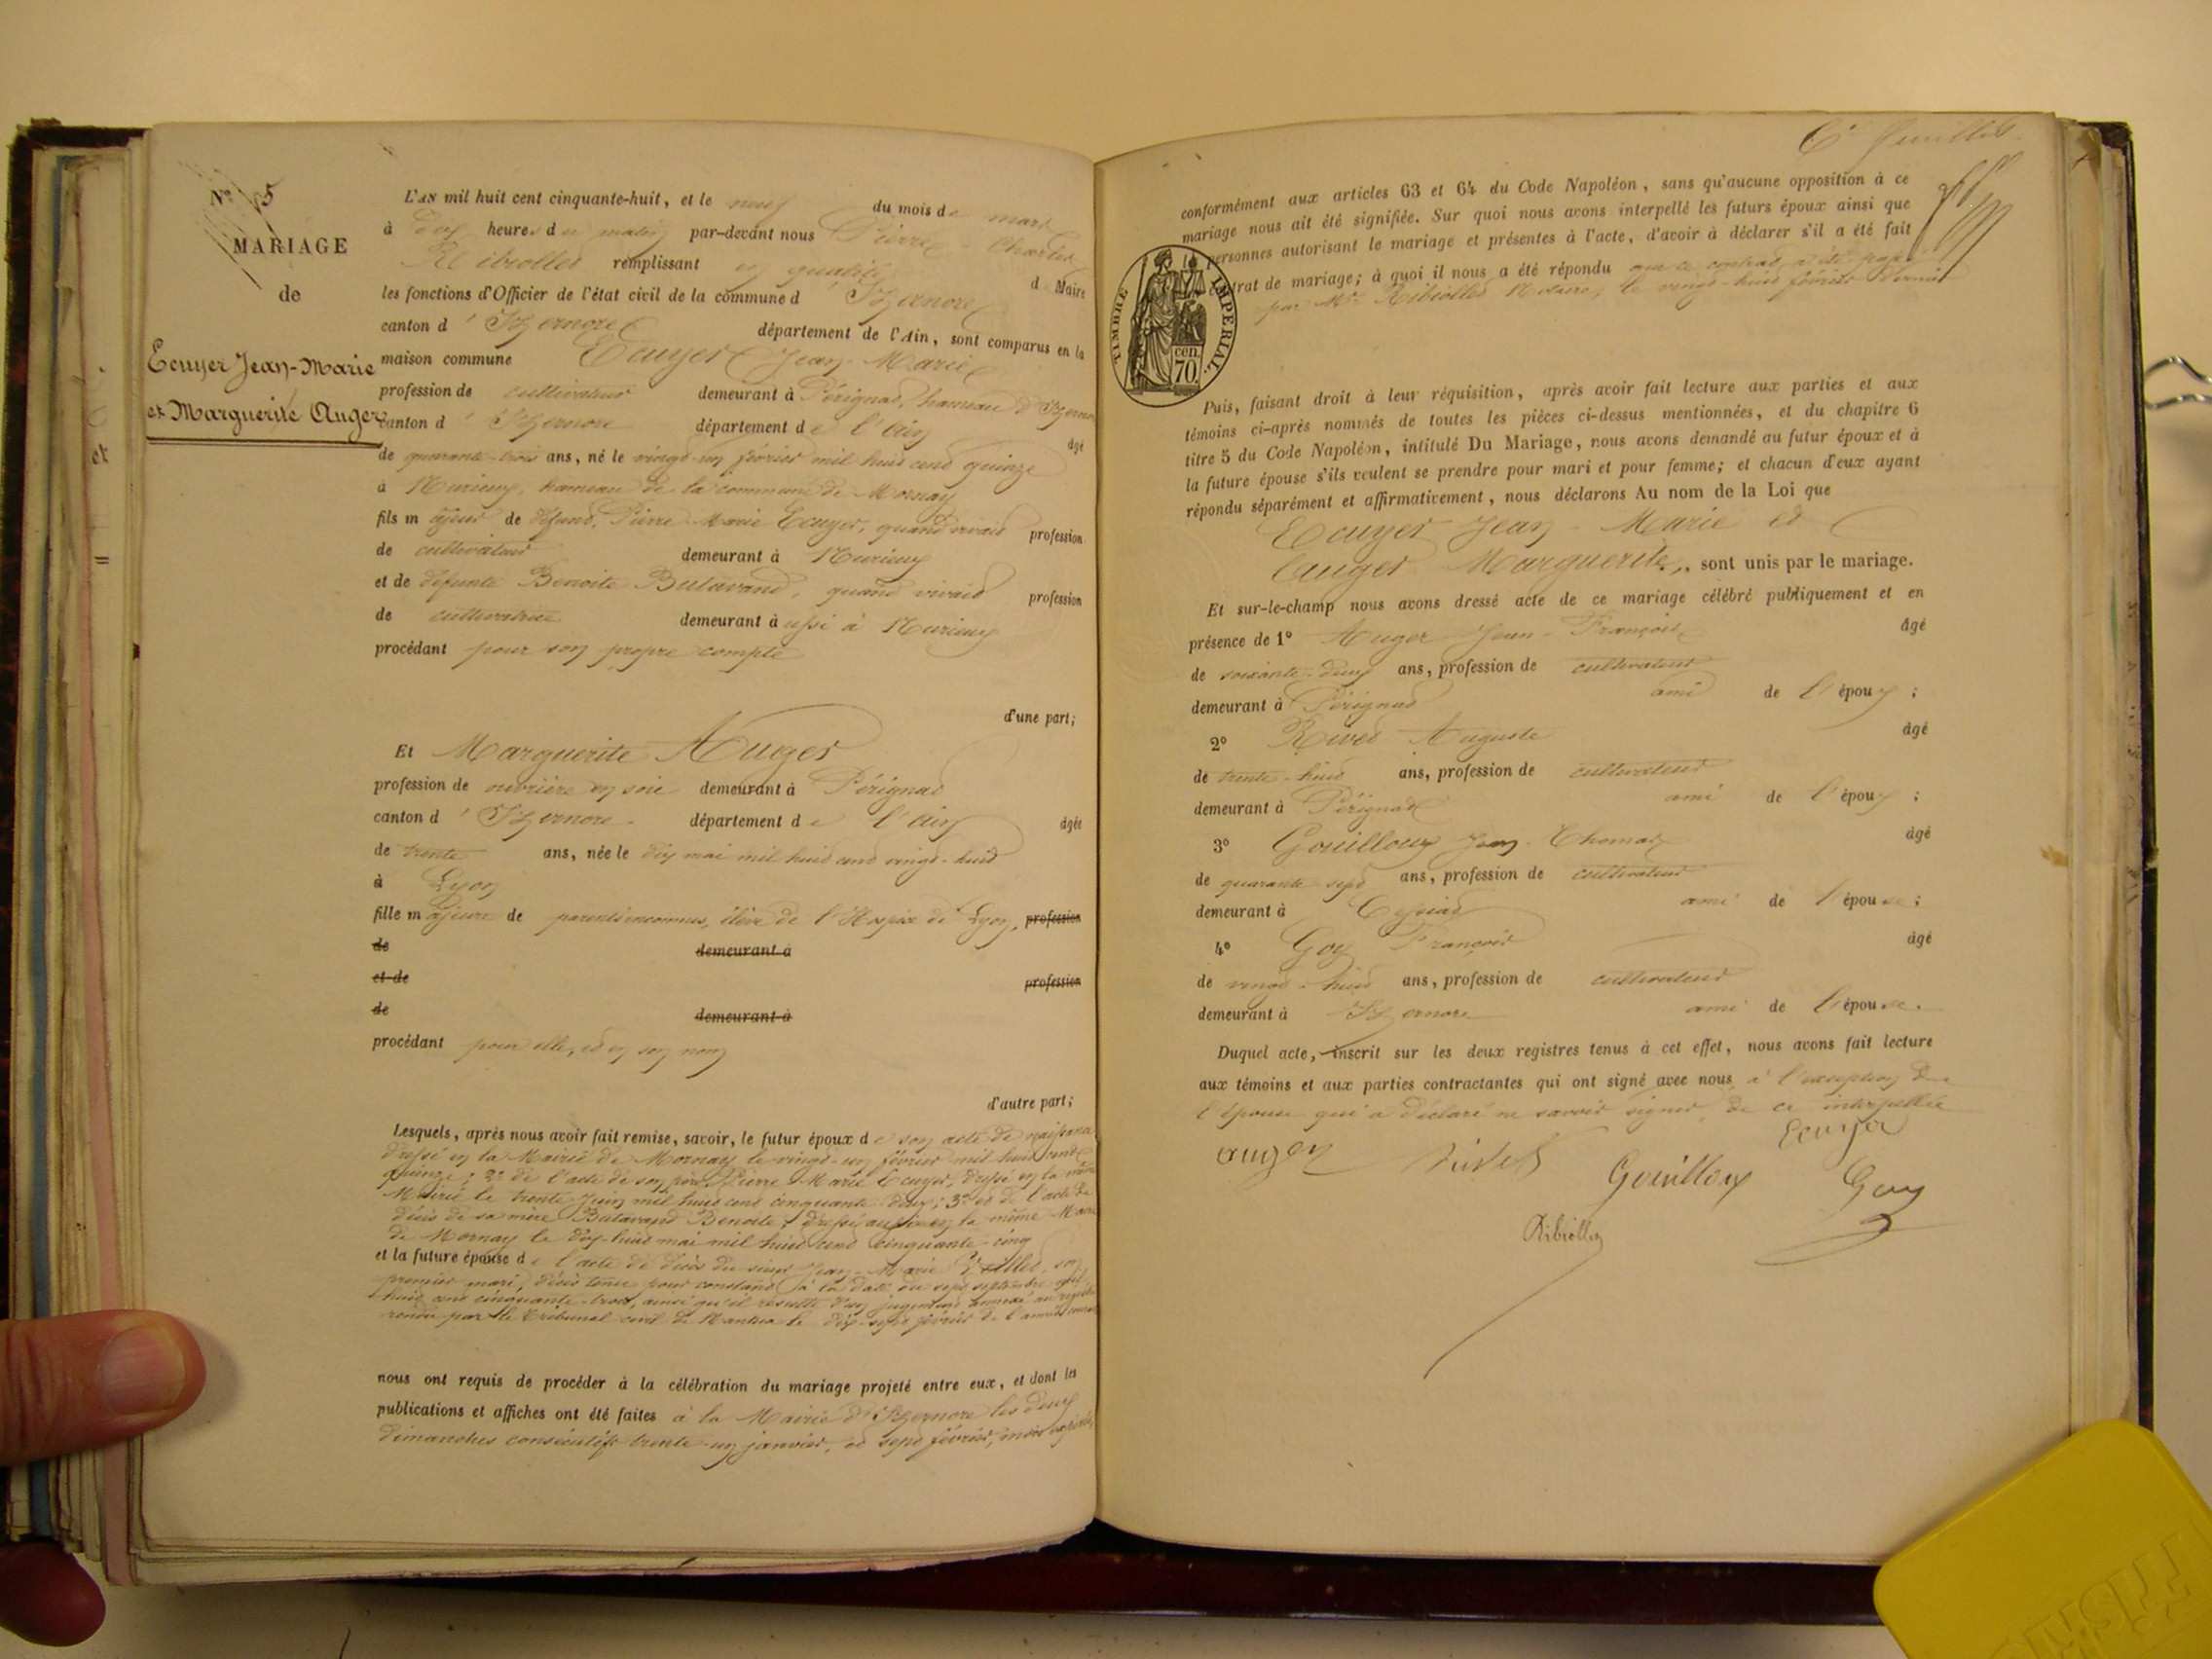 N° 5
MARIAGE
de
Ecuyer Jean-Marie
et Marguerite Auger
L'AN mil huit cent cinquante-huit, et le neuf du mois de mars
à dix heures du matin par-devant nous Pierre Charles
Ribiollet remplissant en qualité de Maire
les fonctions d'Officier de l'état civil de la commune d'Izernore
canton d'Izernore département de l'Ain, sont comparus en la
maison commune Ecuyer Jean-Marie
profession de cultivateur demeurant à Pérignat, hameau d'Izernore
canton d'Izernore département de l'Ain âgé
de quarante-trois ans, né le vingt-un février mil huit cent quinze
à Nurieux, hameau de la commune de Mornay
fils majeur de défunt Pierre Marie Ecuyer, quand vivait profession
de cultivateur demeurant à Nurieux
et de défunte Benoite Butavand, quand vivait profession
de cultivatrice demeurant aussi à Nurieux
procédant pour son propre compte
d'une part;
Et Marguerite Auger
profession de ouvrière en soie demeurant à Pérignat
canton d'Izernore département de l'Ain âgée
de trente ans, née le dix mai mil huit cent vingt-huit
à Lyon
fille majeure de parents inconnus, élève de l'Hospice de Lyon, profession
de demeurant à
et de profession
de demeurant à
procédant pour elle, et en son nom
d'autre part;
Lesquels, après nous avoir fait remise, savoir, le futur époux de son acte de naissance
dressé en la Mairie de Mornay le vingt-un février mil huit cent
quinze; 2° de l'acte de son père Pierre Marie Ecuyer, dressé en la même
Mairie le trente Juin mil huit cent cinquante-deux; 3° et de l'acte de
décès de sa mère Butavand Benoite, dressé aussi en la même Mairie
de Mornay le dix-huit mai mil huit cent cinquante-cinq
et la future épouse de l'acte de décès du sieur Jean-Marie son
premier mari, décès tenu pour constant à la date du sept septembre mil
huit cent cinquante-trois, ainsi qu'il résulte d'un jugement annexé au registre
rendu par le Tribunal civil de Nantua le dix-sept février de l'année courante
nous ont requis de procéder à la célébration du mariage projeté entre eux, et dont les
publications et affiches ont été faites à la Mairie d'Izernore les deux
dimanches consécutifs trente-un janvier, et sept février, mois expirés,
6e feuillet
conformément aux articles 63 et 64 du Code Napoléon, sans qu'aucune opposition à ce
mariage nous ait été signifiée. Sur quoi nous avons interpellé les futurs époux ainsi que
les personnes autorisant le mariage et présentes à l'acte, d'avoir à déclarer s'il a été fait
contrat de mariage; à quoi il nous a été répondu que ce contrat a été passé
par Me Ribiollet Notaire, le vingt-huit février dernier
TIMBRE IMPÉRIAL
70 cen.
Puis, faisant droit à leur réquisition, après avoir fait lecture aux parties et aux
témoins ci-après nommés de toutes les pièces ci-dessus mentionnées, et du chapitre 6
titre 5 du Code Napoléon, intitulé Du Mariage, nous avons demandé au futur époux et à
la future épouse s'ils veulent se prendre pour mari et pour femme; et chacun d'eux ayant
répondu séparément et affirmativement, nous déclarons Au nom de la Loi que
Ecuyer Jean-Marie et
Auger Marguerite, sont unis par le mariage.
Et sur-le-champ nous avons dressé acte de ce mariage célébré publiquement et en
présence de 1° Auger Jean-François âgé
de soixante-deux ans, profession de cultivateur
demeurant à Pérignat ami de l'époux;
2° Rivet Auguste âgé
de trente-huit ans, profession de cultivateur
demeurant à Pérignat ami de l'époux;
3° Gouilloux Jean-Thomas âgé
de quarante-sept ans, profession de cultivateur
demeurant à Ceyssiat ami de l'épouse;
4° Goy François âgé
de vingt-huit ans, profession de cultivateur
demeurant à Izernore ami de l'épouse.
Duquel acte, inscrit sur les deux registres tenus à cet effet, nous avons fait lecture
aux témoins et aux parties contractantes qui ont signé avec nous, à l'exception de
l'épouse qui a déclaré ne savoir signer de ce interpellée
Ecuyer
auger rivet Gouilloux Goy
Ribiollet